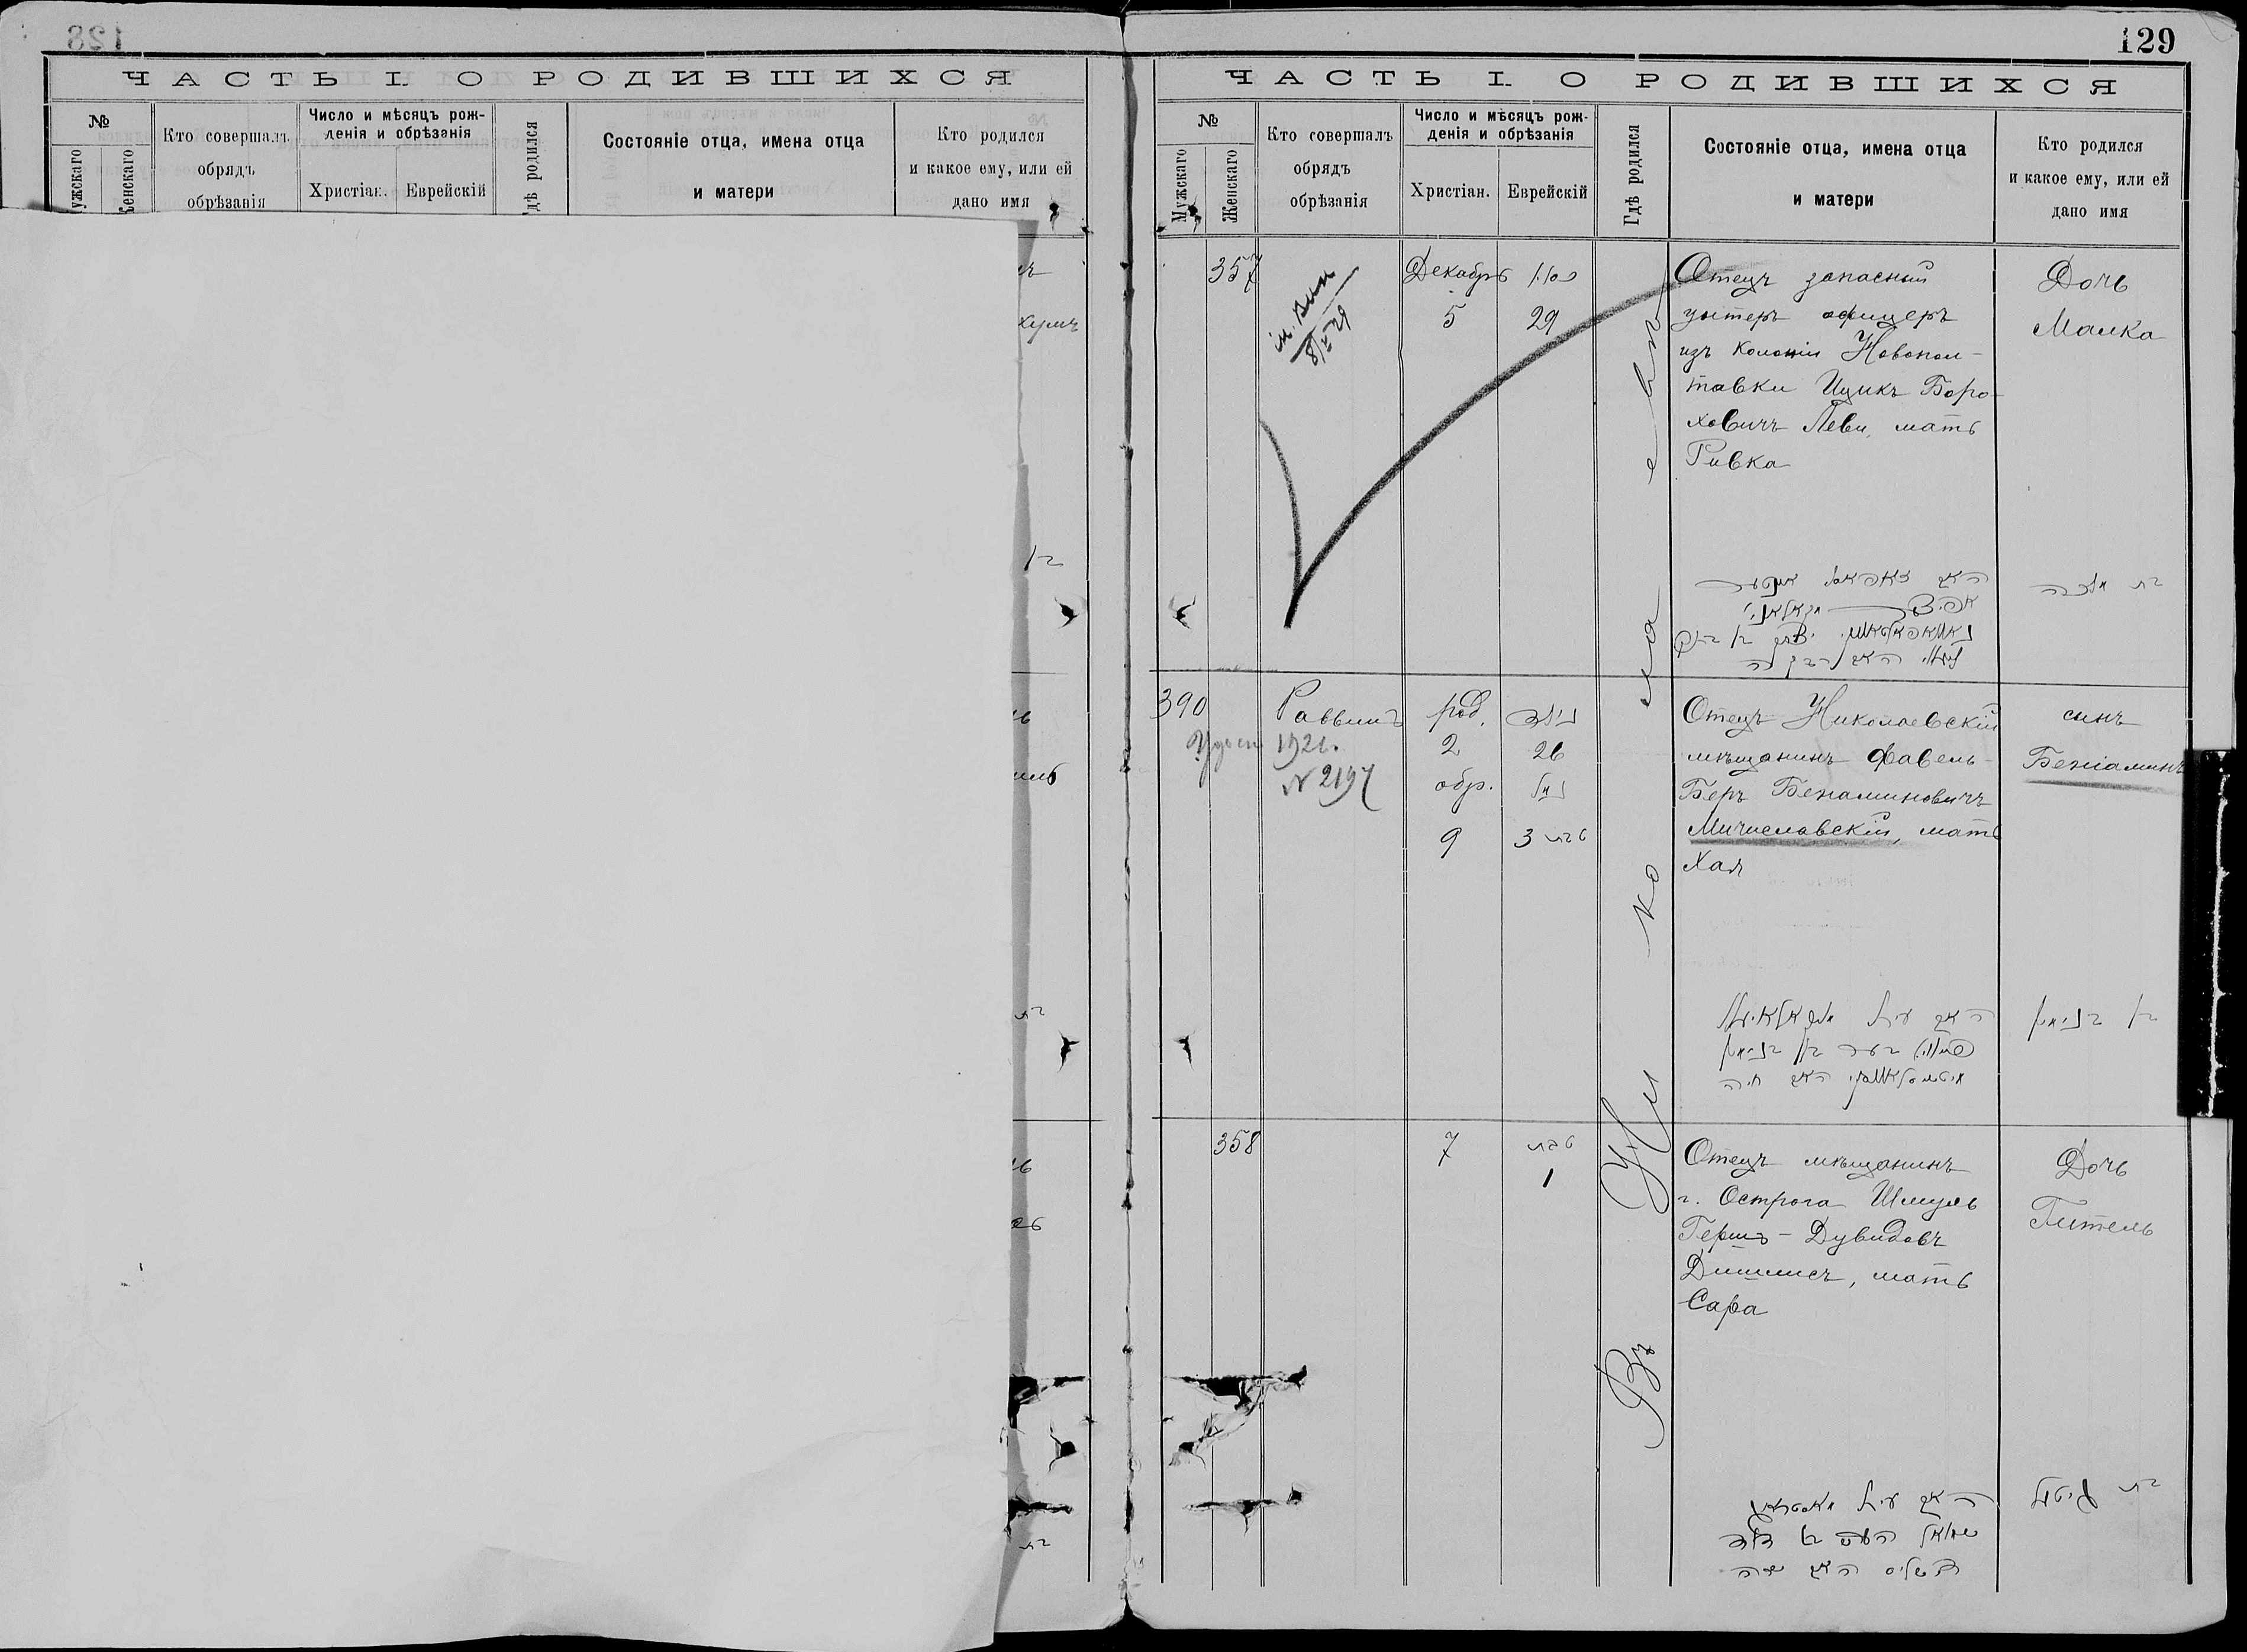 128
ЧАСТЬ I. О РОДИВШИХСЯ
№
Мужскаго
Женскаго
Кто совершалъ
обрядъ
обрѣзанія
Число и мѣсяцъ рож-
денія и обрѣзанія
Христіан.
Еврейскій
Гдѣ родился
Состояніе отца, имена отца
и матери
Кто родился
и какое ему, или ей
дано имя
129
ЧАСТЬ I. О РОДИВШИХСЯ
№
Мужскаго
Женскаго
Кто совершалъ
обрядъ
обрѣзанія
Число и мѣсяцъ рож-
денія и обрѣзанія
Христіан.
Еврейскій
Гдѣ родился
Состояніе отца, имена отца
и матери
Кто родился
и какое ему, или ей
дано имя
Въ Николаевѣ
357
Декабрь
5
כסלו
29
Отецъ запасный
унтеръ офицеръ
изъ колоніи Новопол-
тавки Ицикъ Боро-
ховичъ Леви, мать
Ривка
Дочь
Малка
בת מלכה
390
Раввинъ
1921.
N 2197
род.
2
обр.
9
כסלו
26
טבת 3
Отецъ Николаевскій
мѣщанинъ Фавель-
Беръ Бенаминовичъ
Мичиславскій, мать
Хая
האב עיר
בער בן בנימין
האם חיה
сынъ
Беніаминъ
בן בנימין
358
7
טבת
1
Отецъ мѣщанинъ
г. Острога Шмуль
Гершъ-Дувидовъ
мать
Сара
האב עיר
שמואל הערש בן דוד
האם שרה
Дочь
Гитель
בת גיטל